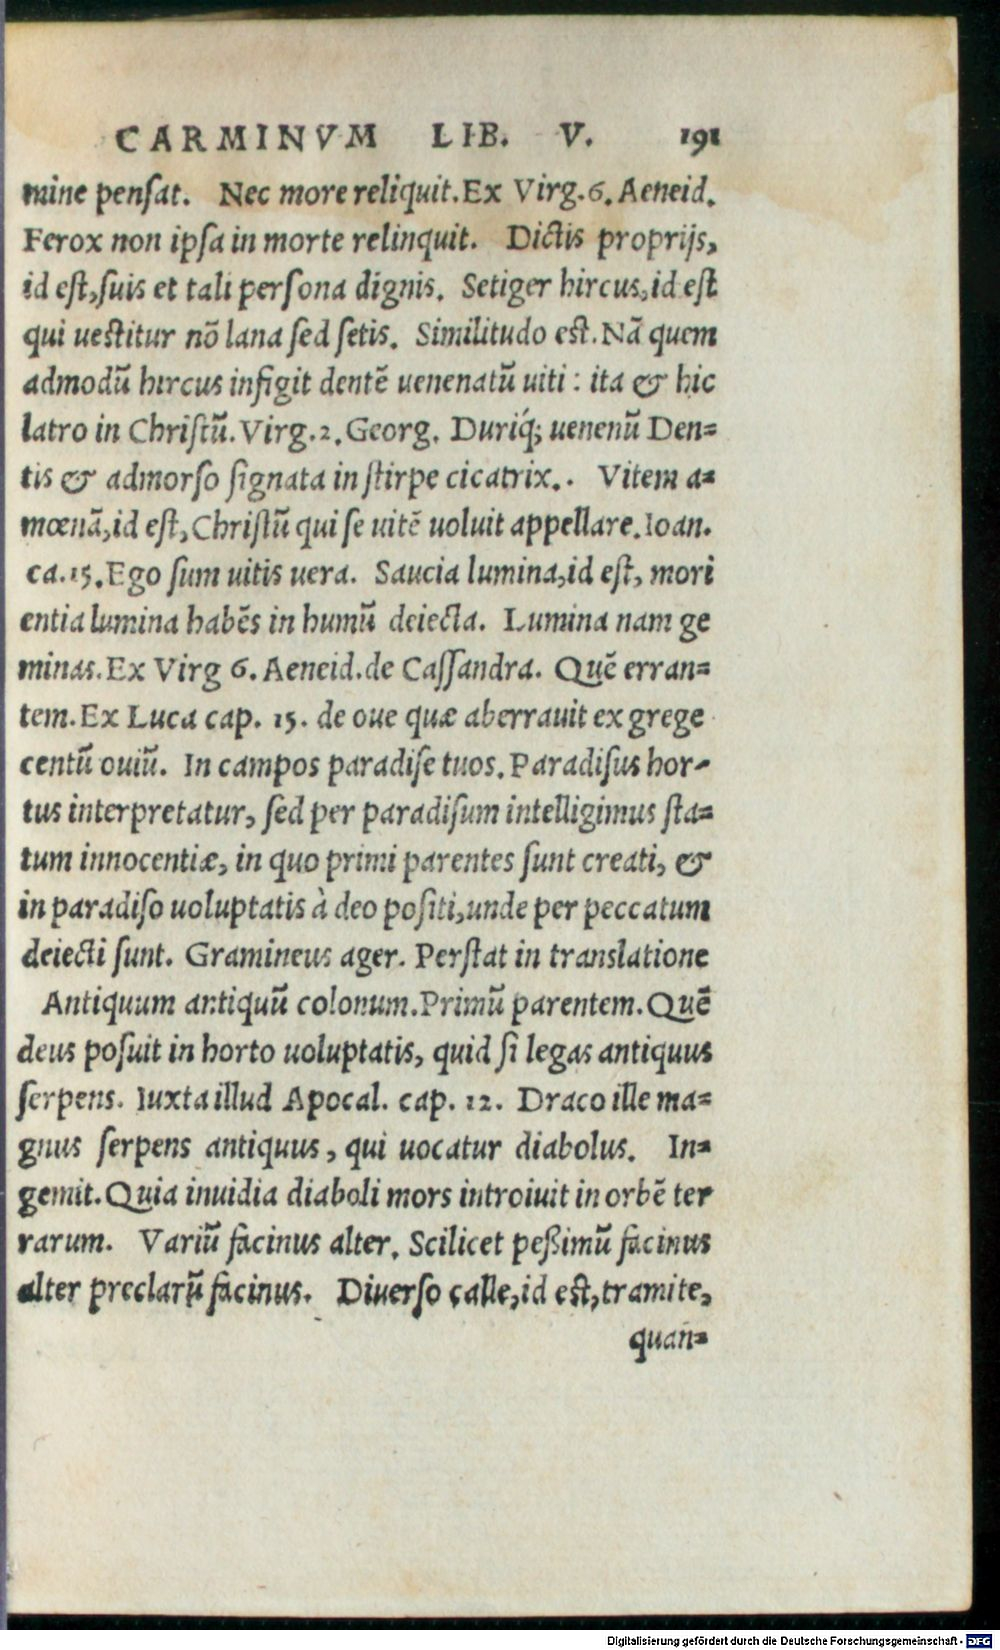 CARMINVM LIB. V. 191
mine pensat. Nec more reliquit. Ex Virg. 6. Aeneid.
Ferox non ipsa in morte relinquit. Dictis proprijs,
id est, suis et tali persona dignis. Setiger hircus, id est
qui uestitur nō lana sed setis. Similitudo est. Nā quem
admodū hircus infigit dentē uenenatū uiti : ita & hic
latro in Christū. Virg. 2. Georg. Duriq́; uenenū Den=
tis & admorso signata in stirpe cicatrix.. Vitem a=
mœnā, id est, Christū qui se uitē uoluit appellare. Ioan.
ca. 15. Ego sum uitis uera. Saucia lumina, id est, mori
entia lumina habēs in humū deiecta. Lumina nam ge
minas. Ex Virg 6. Aeneid. de Cassandra. Quē erran=
tem. Ex Luca cap. 15. de oue quæ aberrauit ex grege
centū ouiū. In campos paradise tuos. Paradisus hor-
tus interpretatur, sed per paradisum intelligimus sta=
tum innocentiæ, in quo primi parentes sunt creati, &
in paradiso uoluptatis à deo positi, unde per peccatum
deiecti sunt. Gramineus ager. Perstat in translatione
Antiquum antiquū colonum. Primū parentem. Quē
deus posuit in horto uoluptatis, quid si legas antiquus
serpens. Iuxta illud Apocal. cap. 12. Draco ille ma=
gnus serpens antiquus, qui uocatur diabolus. In=
gemit. Quia inuidia diaboli mors introiuit in orbē ter
rarum. Variū facinus alter. Scilicet peßimū facinus
alter preclarū facinus. Diuerso calle, id est, tramite,
quan=
Digitalisierung gefördert durch die Deutsche Forschungsgemeinschaft - DFG